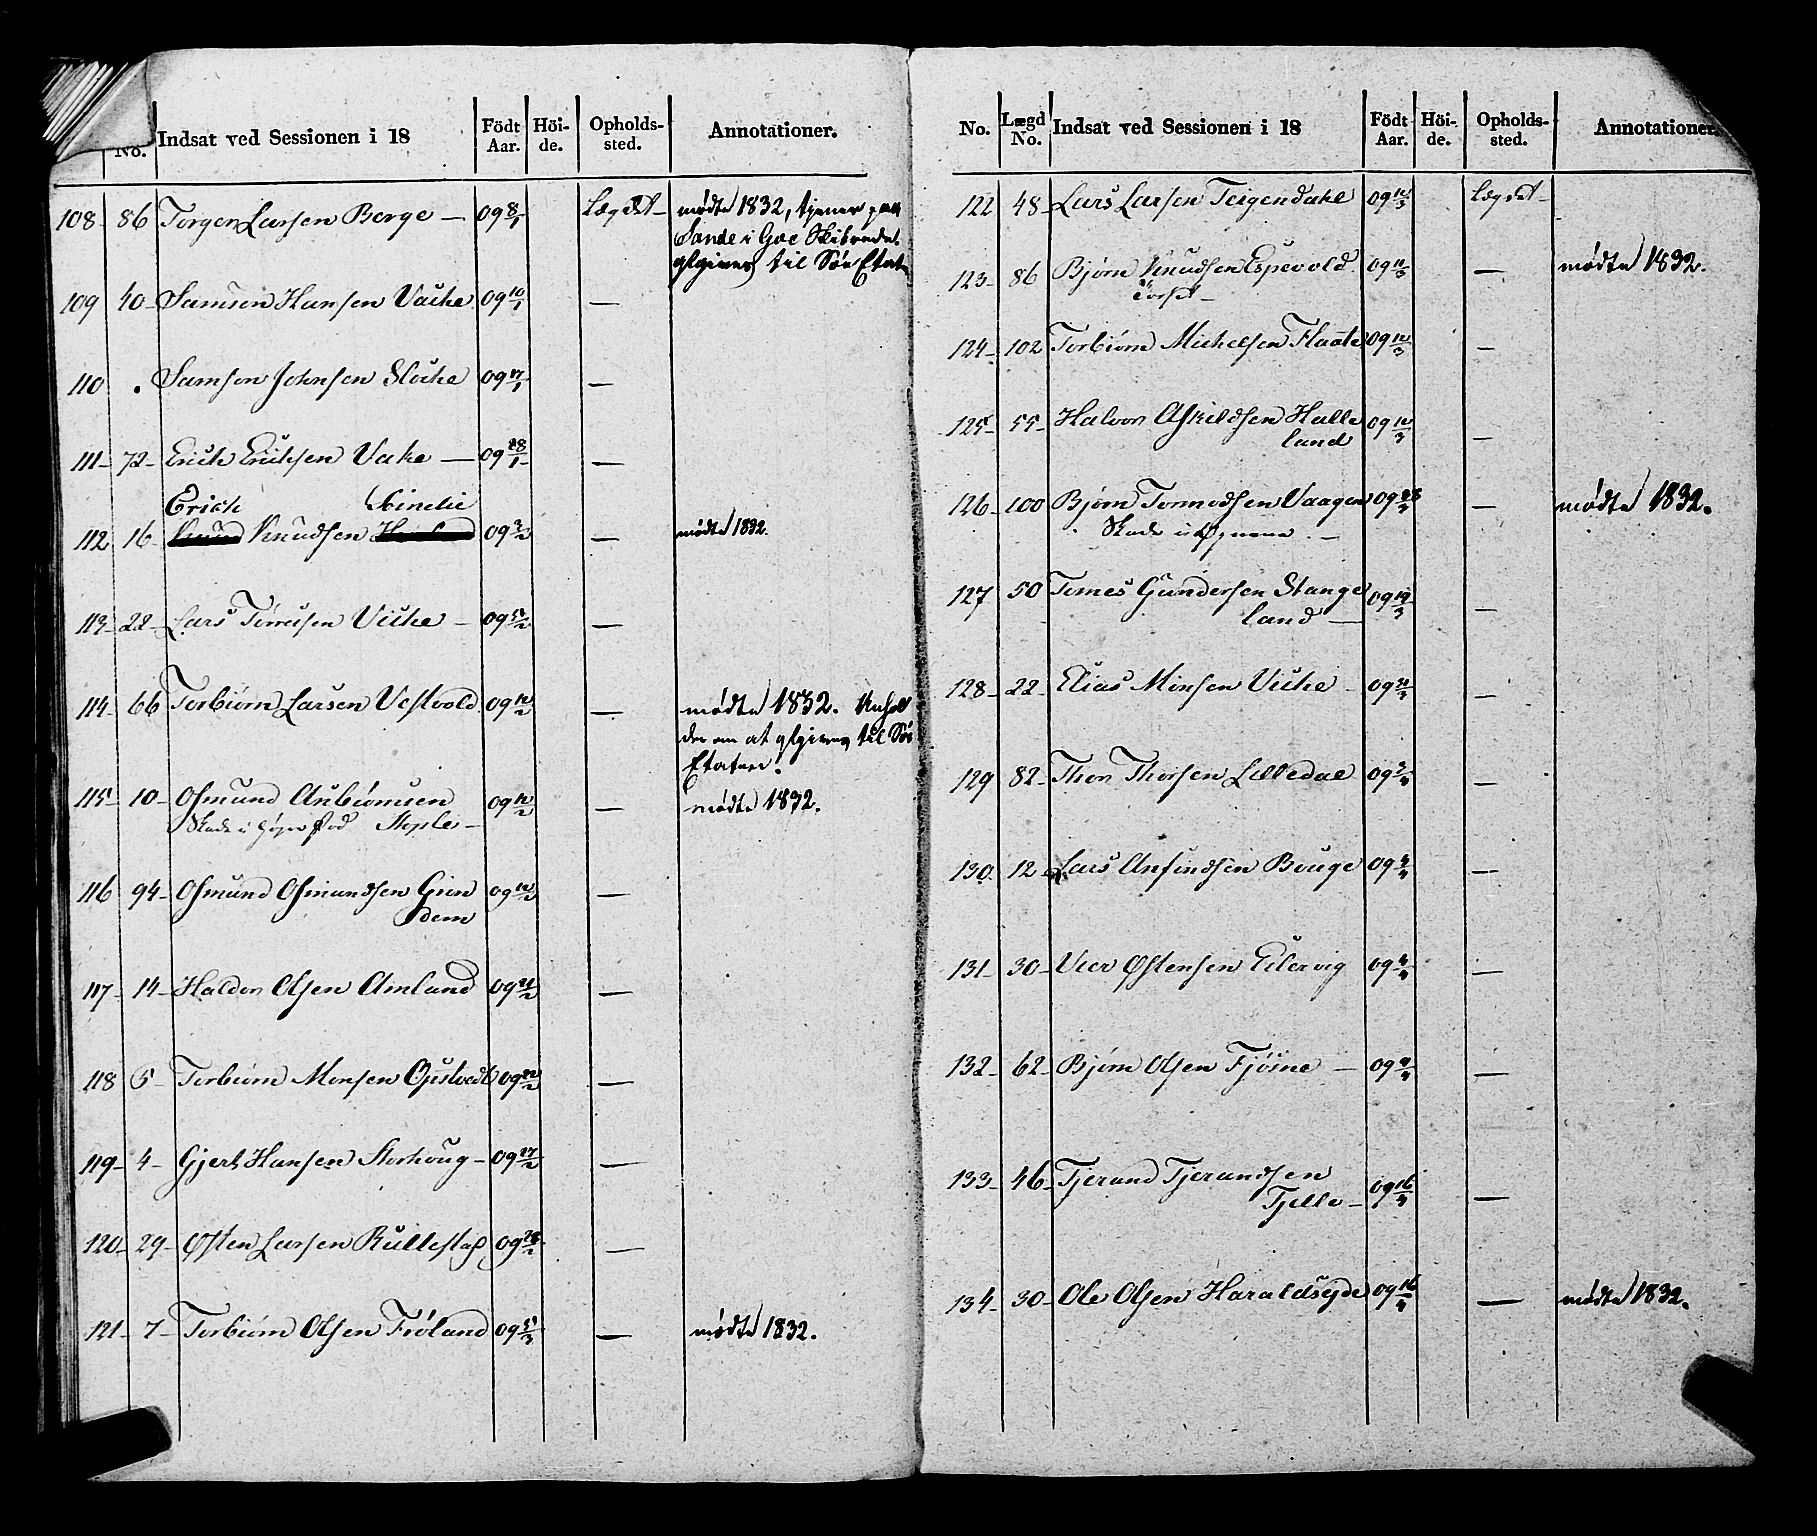 No. Indsat ved Sessionen i 18 Födt Aar. Höi-de. Opholds-sted. Annotationer.
108 86 Torger Larsen Berge — 09 8/1 Lægdet — mødte 1832, tjener paa
Sande i Skibrede
afgives til Søe Etat
109 40 Samson Hansen Vaike 09 10/1 —
110 . Samson Johnsen Sloike 09 17/1 —
111 72 Erich Erichsen Vake — 09 28/1 —
Erich
112 16 Knud Knudsen 09 3/2 — mødte 1832.
113 22 Lars Tørresen Viche — 09 5/2 —
114 66 Torbiørn Larsen Vestvold 09 12/2 — mødte 1832. Anhol
der om at afgives til Sø
Etaten.
115 10 Osmund Aubiørnsen 09 12/2 — mødte 1832.
Skade i høyre Fod Stople —
116 94 Osmund Osmundsen Gien 09 12/2 —
dem
117 14 Haldor Olsen Amland 09 21/2 —
118 5 Torbiørn Monsen Opstvedt 09 22/2 —
119 4 Gjert Hansen Storhoug — 09 27/2 —
120 29 Østen Larsen Rullestad 09 28/2 —
121 7 Torbiørn Olsen Frøland 09 5/3 — mødte 1832.
No. Lægd No. Indsat ved Sessionen i 18 Födt Aar. Höi-de. Opholds-sted. Annotationer.
122 48 Lars Larsen Teigendahl 09 12/3 Lægdet —
123 86 Bjørn Knudsen Espevold 09 11/3 — mødte 1832.
124 102 Torbiørn Michelsen Flaate 09 12/3 —
125 55 Halvor Askildsen Halle 09 12/3 —
land
126 100 Bjørn Tormodsen Vaagen 09 28/3 — mødte 1832.
Skade i Øynene —
127 50 Tomes Gundersen Stange 09 19/3 —
land —
128 22 Elias Monsen Viche — 09 31/3 —
129 82 Thor Thorsen Lilledal 09 3/4 —
130 12 Lars Anfindsen Bouge 09 4/4 —
131 30 Vier Østensen Eilervig 09 4/4 —
132 62 Bjørn Olsen Fjøsne — 09 9/4 —
133 46 Tjerand Tjerandsen 09 16/4 —
Tjelle —
134 30 Ole Olsen Haraldseyde 09 16/4 — mødte 1832.